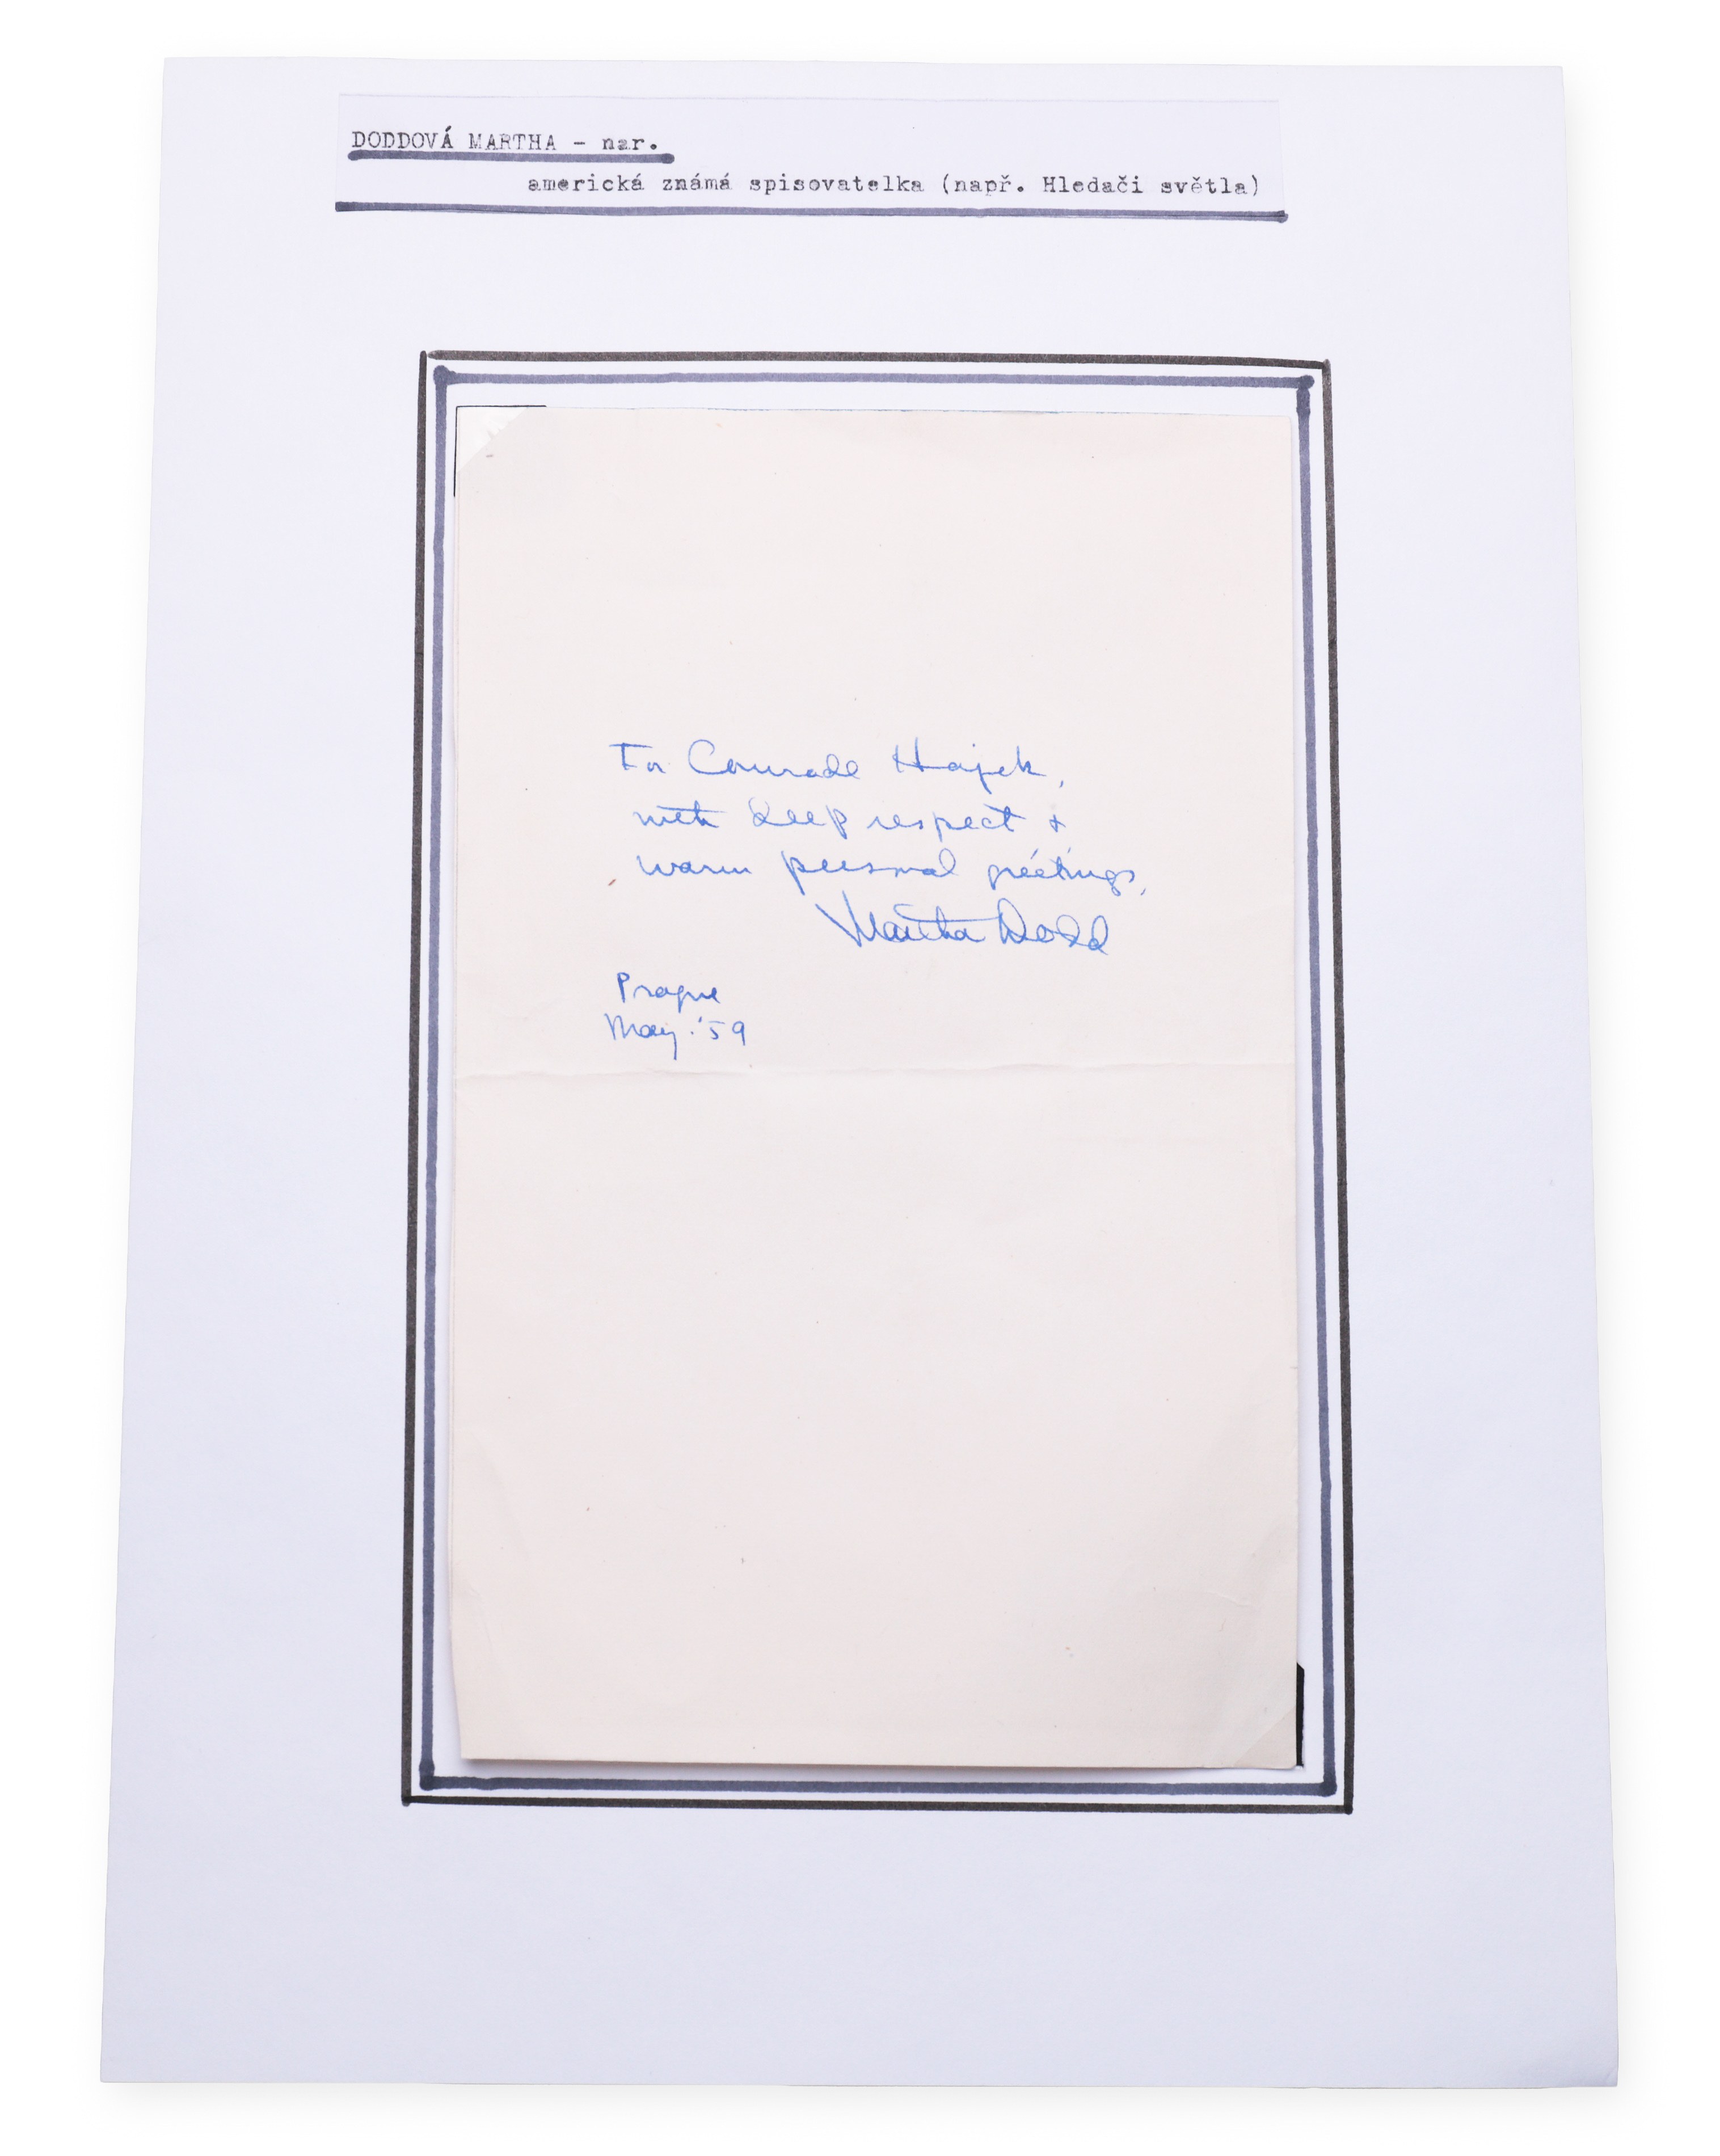 DODDOVÁ MARTHA - nar.
americká známá spisovatelka (např. Hledači světla)
For Comrade Hajek,
with deep respect +
warm personal greetings,
Martha Dodd
Prague
May '59